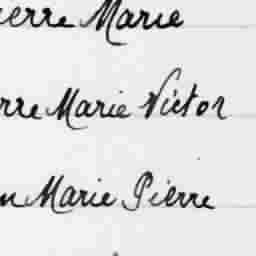 ierre Marie
rre Marie Victor
n Marie Pierre